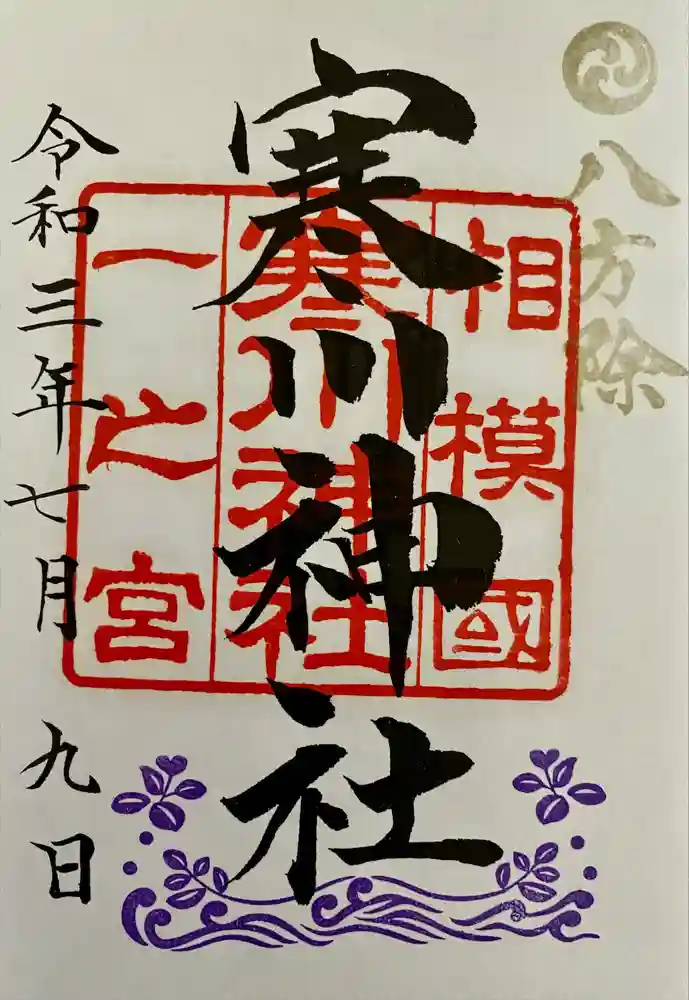 八方除
相模國
寒川神社
一之宮
寒川神社
令和三年七月九日